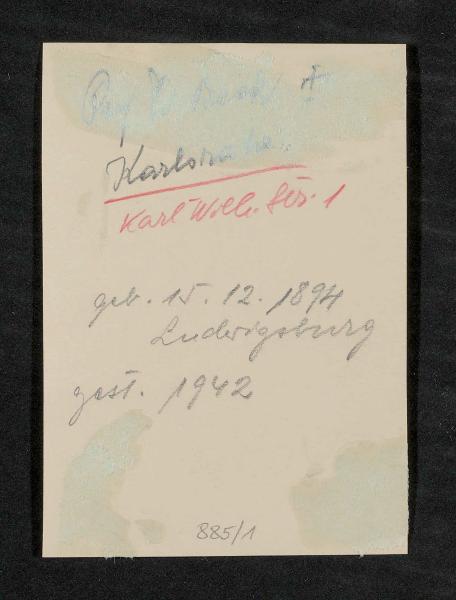 Karlsruhe
Karl Wilh. Str. 1
geb. 15. 12. 1894
Ludwigsburg
gest. 1942
885/1